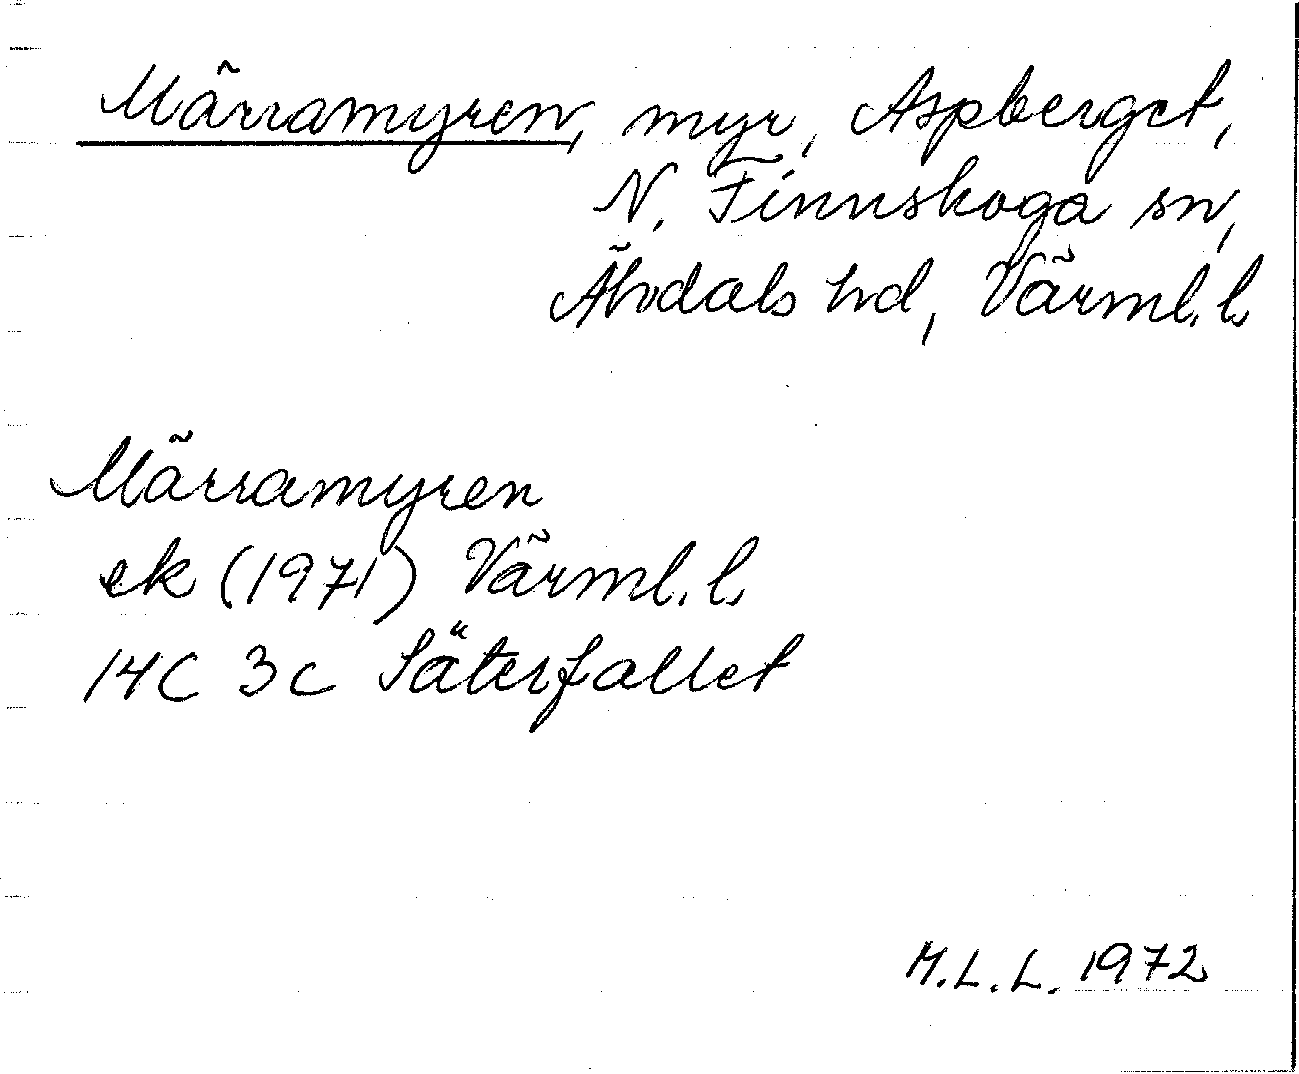 Märramyren, myr, Aspberget,
N. Finnskoga sn,
Älvdals hd, Värml. l.
Märramyren
ek (1971) Värml. l.
14C 3c Säterfallet
M.L.L. 1972